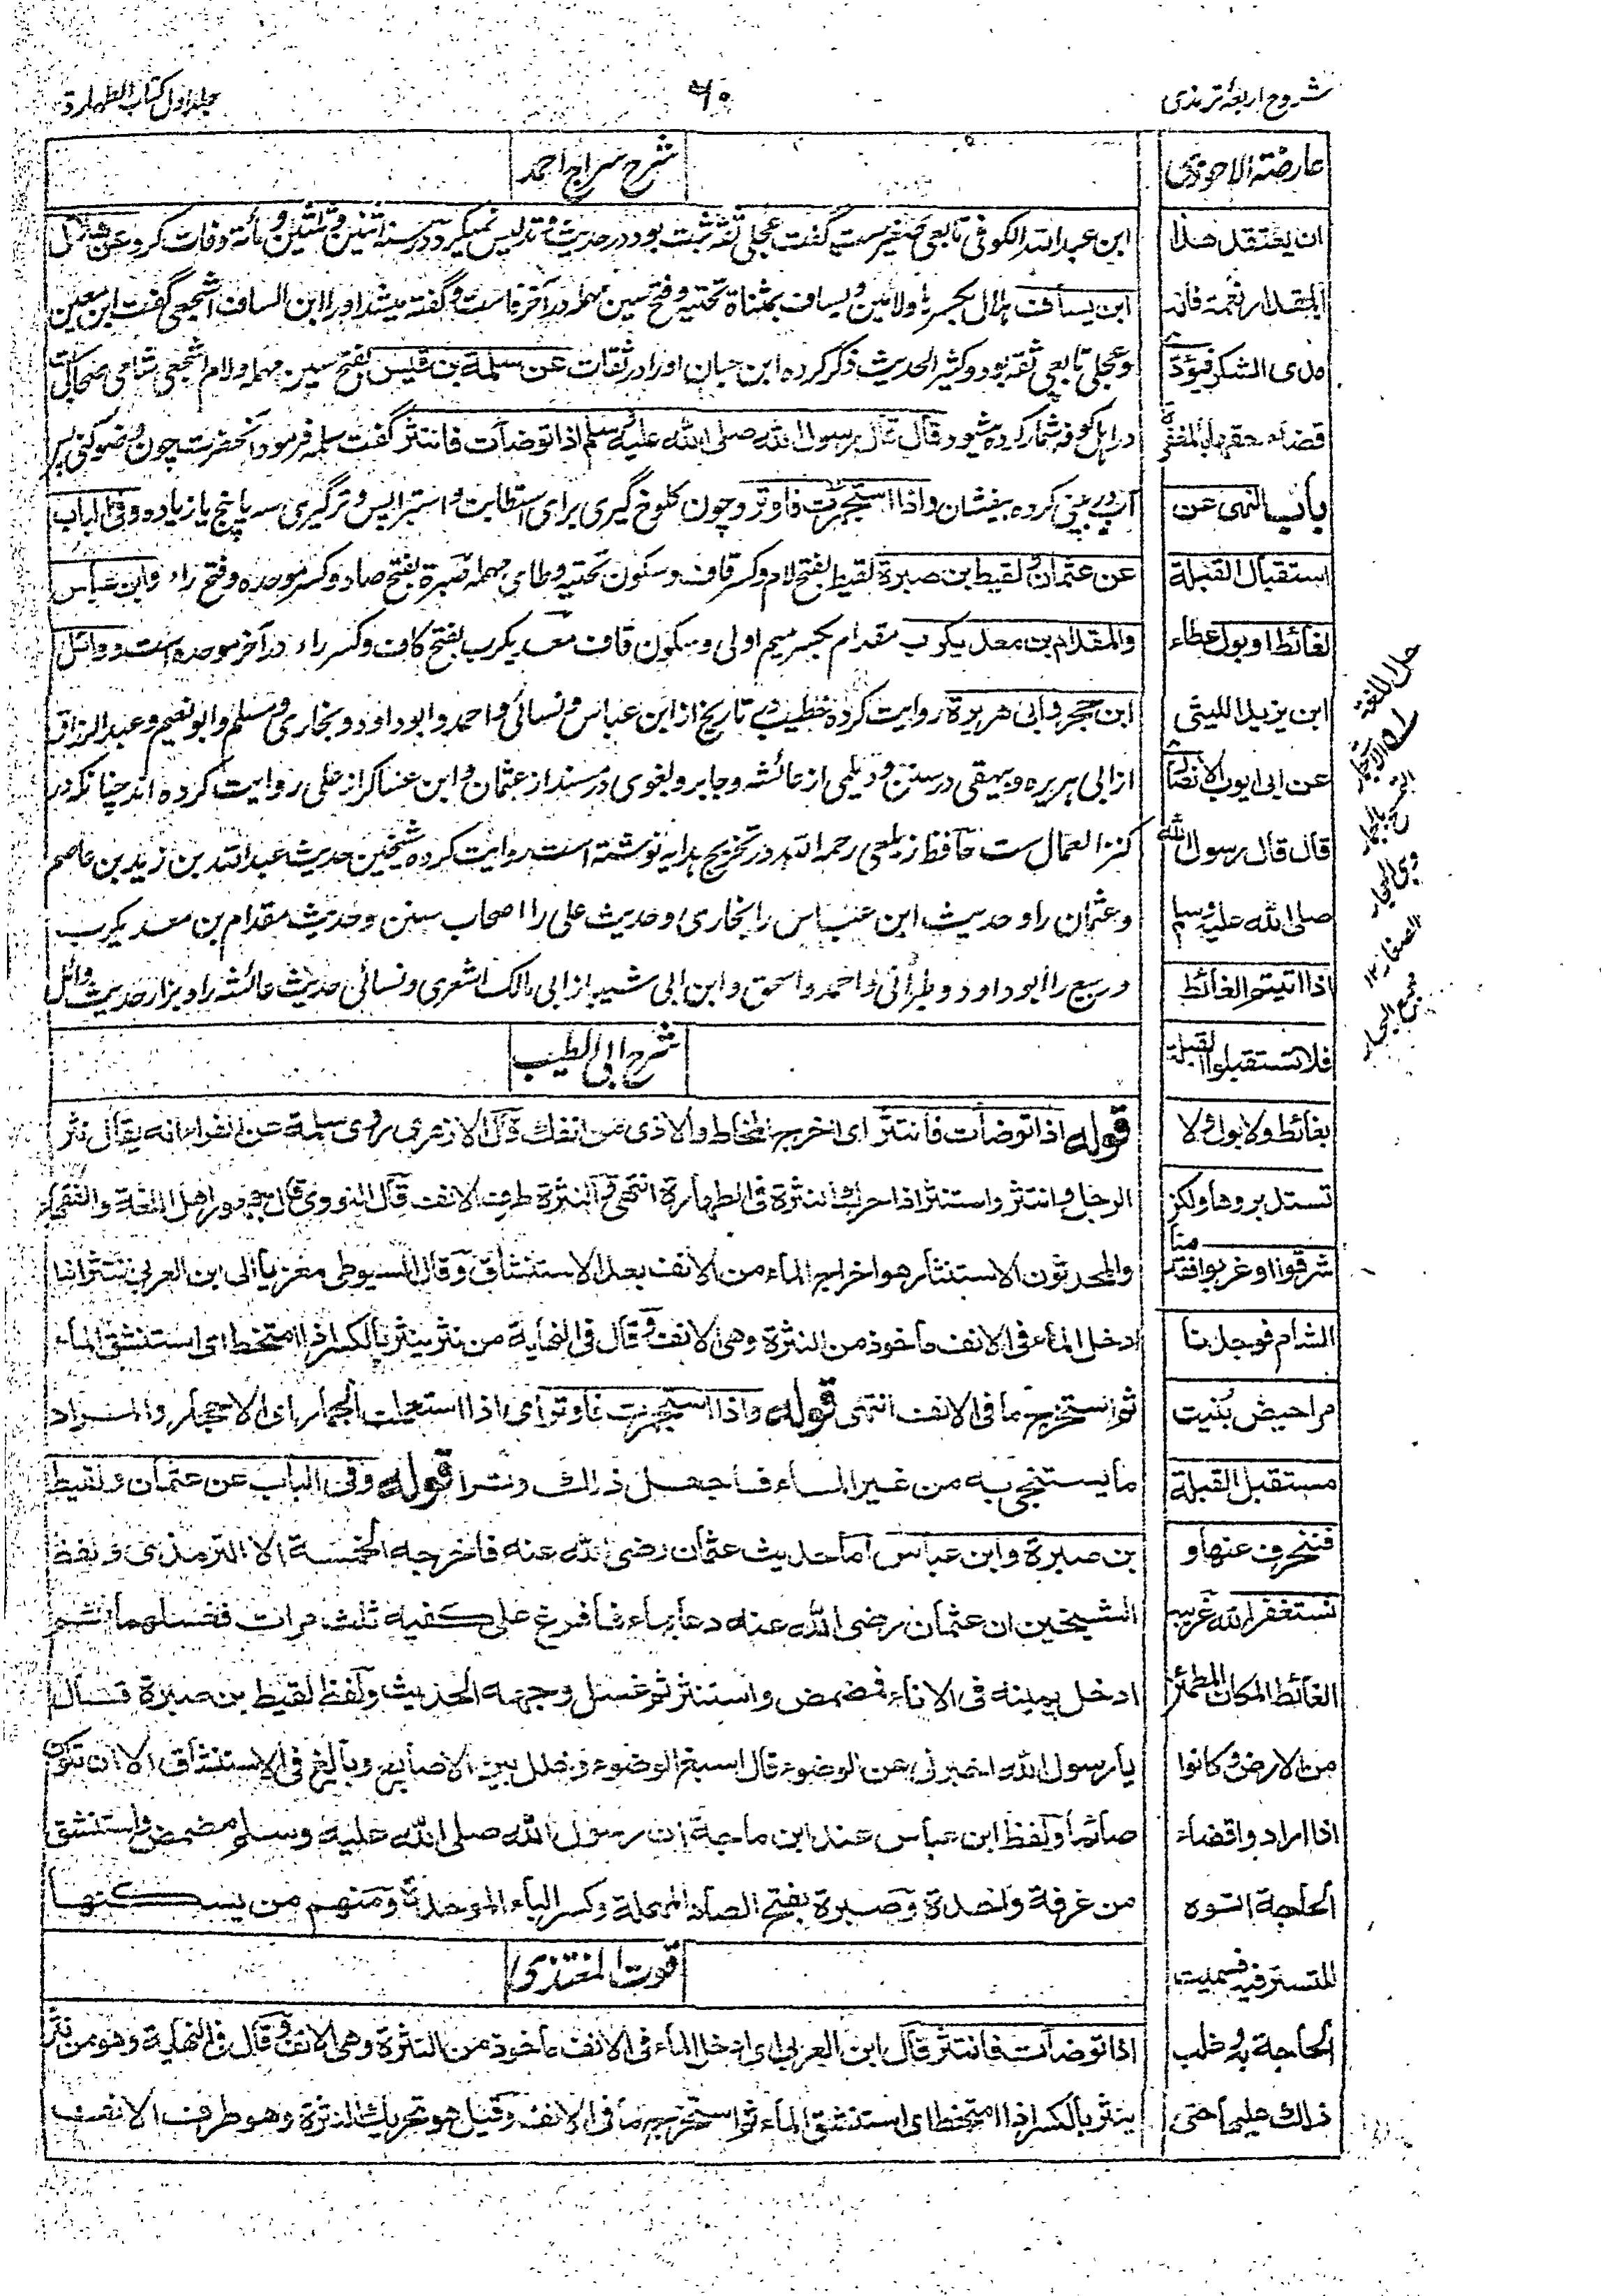 شروح اربعهٔ ترمذی
۶۰
جلد اول کتاب الطهارة
عارضة الاحوذی
ان یعتقد هذا
المقدار نعمة فانه
مدی الشکر فیؤدّ
قضاء حقها بالمغفرة
باب النهی عن
استقبال القبلة
لغائط او بول عطاء
ابن یزید اللیثی
عن ابی ایوب الانصاری
قال قال رسول الله
صلی الله علیه وسلم
اذا اتیتم الغائط
فلا تستقبلوا القبلة
بغائط ولا بول ولا
تستدبروها ولکن
شرقوا او غربوا فقدمنا
الشام فوجدنا
مراحیض بُنیت
مستقبل القبلة
فننحرف عنها و
نستغفر الله غریبه
الغائط المکان المطمئن
من الارض کانوا
اذا ارادوا قضاء
الحاجة اتوه
للتستر فیه فسمیت
الحاجة به وغلب
ذلک علیها حتی
شرح سراج احمد
ابن عبد الله الکوفی تابعی صغیرست گفت عجلی ثقه ثبت بود در حدیث و تدلیس نمیکرد در سنه اثنین و ثلثین و مأئة وفات کرد عن هلال
ابن یساف هلال بکسر ها و لامین و یساف بمثناة تحتیه و فتح سین مهمله در آخر فاست و گفته میشد او را ابن اساف اشجعی گفت ابن معین
و عجلی تابعی ثقه بود و کثیر الحدیث ذکر کرده ابن حبان او را در ثقات عن سلمة بن قیس بفتح سین مهمله و لام اشجعی شامی صحابیست
در اهل کوفه شمار کرده میشود قال قال رسول الله صلی الله علیه وسلم اذا توضأت فانتثر گفت سلمه فرمود آنحضرت چون وضو کنی پس
آب در بینی کرده بیفشان و اذا استجمرت فاوتر و چون کلوخ گیری برای استطابت و استبرا پس وتر گیری سه یا پنج یا زیاده و فی الباب
عن عثمان و لقیط بن صبرة لقیط بفتح لام و کسر قاف و سکون تحتیه و طای مهمله صبرة بفتح صاد و کسر موحده و فتح راء و ابن عباس
والمقدام بن معد یکرب مقدام بکسر میم اولی و سکون قاف معد یکرب بفتح کاف و کسر راء در آخر موحده است و وائل
ابن حجر و ابی هریرة روایت کرده خطیب در تاریخ از ابن عباس و نسائی و احمد و ابوداود و بخاری و مسلم و ابونعیم و عبد الرزاق
از ابی هریره و بیهقی در سنن و دیلمی از عائشه و جابر و بغوی در مسند از عثمان و ابن عساکر از علی روایت کرده اند چنانکه در
کنز العمال ست حافظ زیلعی رحمه الله در تخریج هدایه نوشته است روایت کرده شیخین حدیث عبد الله بن زید بن عاصم
و عثمان را و حدیث ابن عباس را بخاری و حدیث علی را اصحاب سنن و حدیث مقدام بن معد یکرب
و ربیع را ابوداود و طبرانی و احمد و اسحق و ابن ابی شیبه از ابی مالک اشعری و نسائی حدیث عائشه را و بزار حدیث وائل
شرح ابی الطیب
قوله اذا توضأت فانتثر ای اخرج المخاط والاذی من انفک وقال الازهری روی سلمة عن الفراء انه یقال نثر
الرجل وانتثر واستنثر اذا حرک النثرة فی الطهارة انتهی والنثرة طرف الانف قال النووی قال جمهور اهل اللغة والفقهاء
والمحدثون الاستنثار هو اخراج الماء من الانف بعد الاستنشاق وقال السیوطی معزیا الی ابن العربی نتثر انبا
ادخل الماء فی الانف مأخوذ من النثرة وهی الانف وقال فی النهایة من نثر ینثر بالکسر اذا امتخط ای استنشق الماء
ثم استخرج ما فی الانف انتهی قوله واذا استجمرت فاوتر ای اذا استعملت الجمار ای الاحجار والمراد
ما یستنجی به من غیر الماء فاجعل ذلک وترا قوله وفی الباب عن عثمان ولقیط
بن صبرة وابن عباس اما حدیث عثمان رضی الله عنه فاخرجه الخمسة الا الترمذی ولفظ
الشیخین ان عثمان رضی الله عنه دعا بماء فافرغ علی کفیه ثلث مرات فغسلهما ثم
ادخل یمینه فی الاناء فمضمض واستنثر ثم غسل وجهه الحدیث ولفظ لقیط بن صبرة قال
یا رسول الله اخبرنی عن الوضوء قال اسبغ الوضوء وخلل بین الاصابع وبالغ فی الاستنشاق الا ان تکون
صائما ولفظ ابن عباس عند ابن ماجة ان رسول الله صلی الله علیه وسلم مضمض واستنشق
من غرفة واحدة وصبرة بفتح الصاد المهملة وکسر الباء الموحدة ومنهم من یسکنها
قوت المغتذی
اذا توضأت فانتثر قال ابن العربی ای ادخل الماء فی الانف مأخوذ من النثرة وهی الانف وقال فی النهایة وهو من نثر
ینثر بالکسر اذا امتخط ای استنشق الماء ثم استخرج ما فی الانف وقیل هو تحریک النثرة وهو طرف الانف
حل اللغة
مجمع البحار